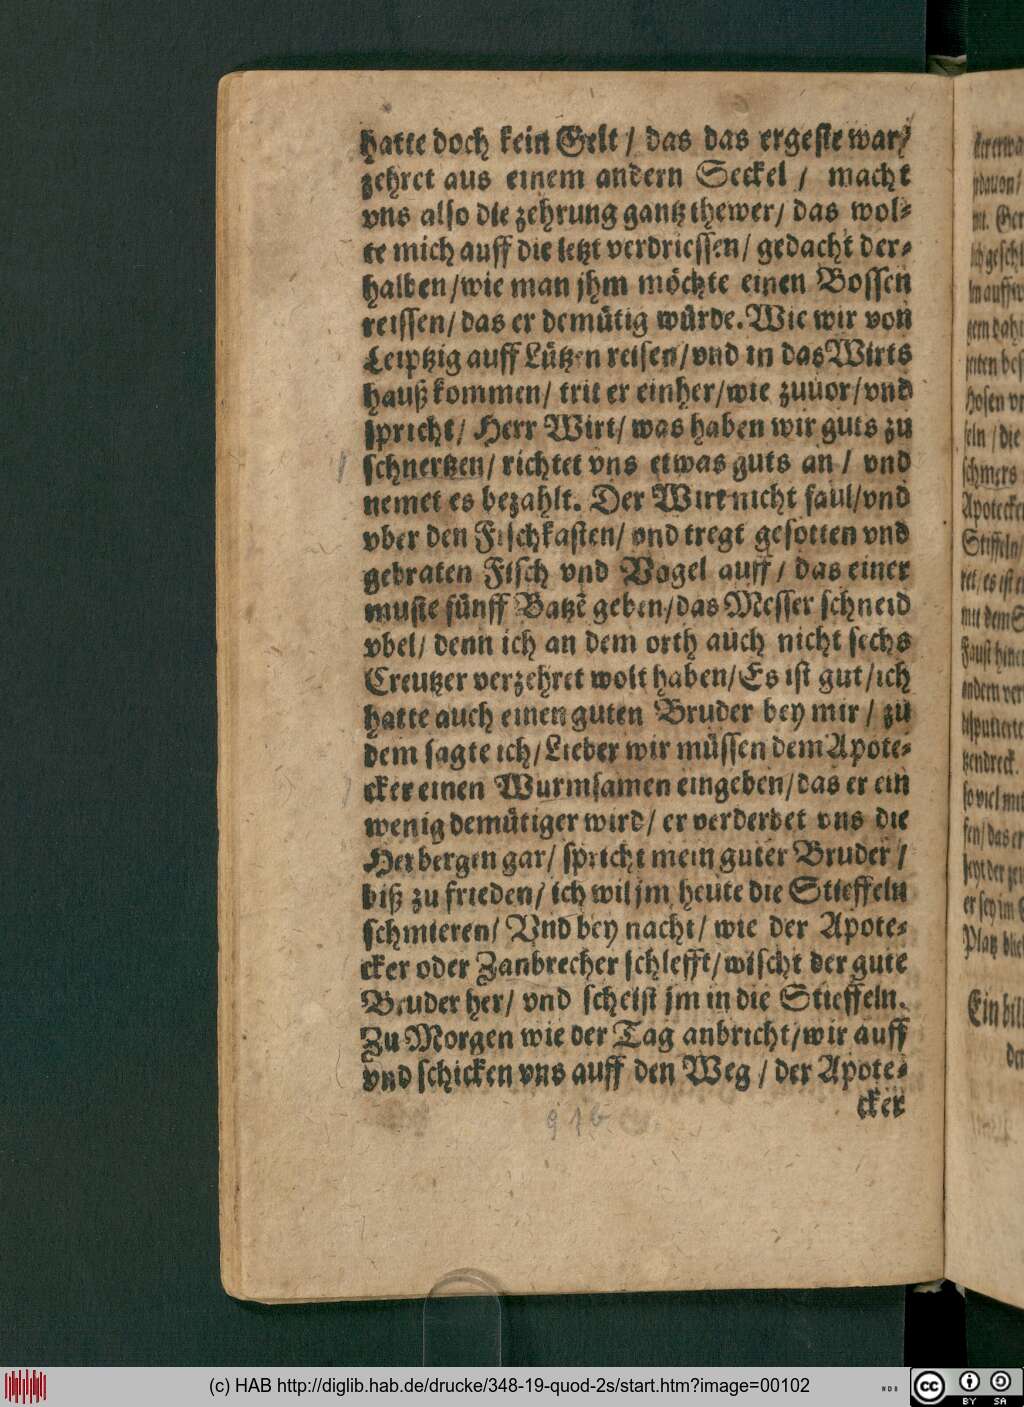 hatte doch kein Gelt / das das ergeste war /
zehret aus einem andern Seckel / macht
vns also die zehrung gantz thewer / das wol-
te mich auff die letzt verdriessen / gedacht der-
halben / wie man jhm möchte einen Bossen
reissen / das er demütig würde. Wie wir von
Leiptzig auff Lützen reisen / vnd in das Wirts
hauß kommen / trit er einher / wie zuuor / vnd
spricht / Herr Wirt / was haben wir guts zu
schnertzen / richtet vns etwas guts an / vnd
nemet es bezahlt. Der Wirt nicht faul / vnd
vber den Fischkasten / vnd tregt gesotten vnd
gebraten Fisch vnd Vogel auff / das einer
muste fünff Batzē geben / das Messer schneid
vbel / denn ich an dem orth auch nicht sechs
Creutzer verzehret wolt haben / Es ist gut / ich
hatte auch einen guten Bruder bey mir / zu
dem sagte ich / Lieber wir müssen dem Apote-
cker einen Wurmsamen eingeben / das er ein
wenig demütiger wird / er verderbet vns die
Herbergen gar / spricht mein guter Bruder /
biß zu frieden / ich wil jm heute die Stieffeln
schmieren / Vnd bey nacht / wie der Apote-
cker oder Zanbrecher schlefft / wischt der gute
Bruder her / vnd scheist jm in die Stieffeln.
Zu Morgen wie der Tag anbricht / wir auff
vnd schicken vns auff den Weg / der Apote-
cker
(c) HAB http://diglib.hab.de/drucke/348-19-quod-2s/start.htm?image=00102
BY SA